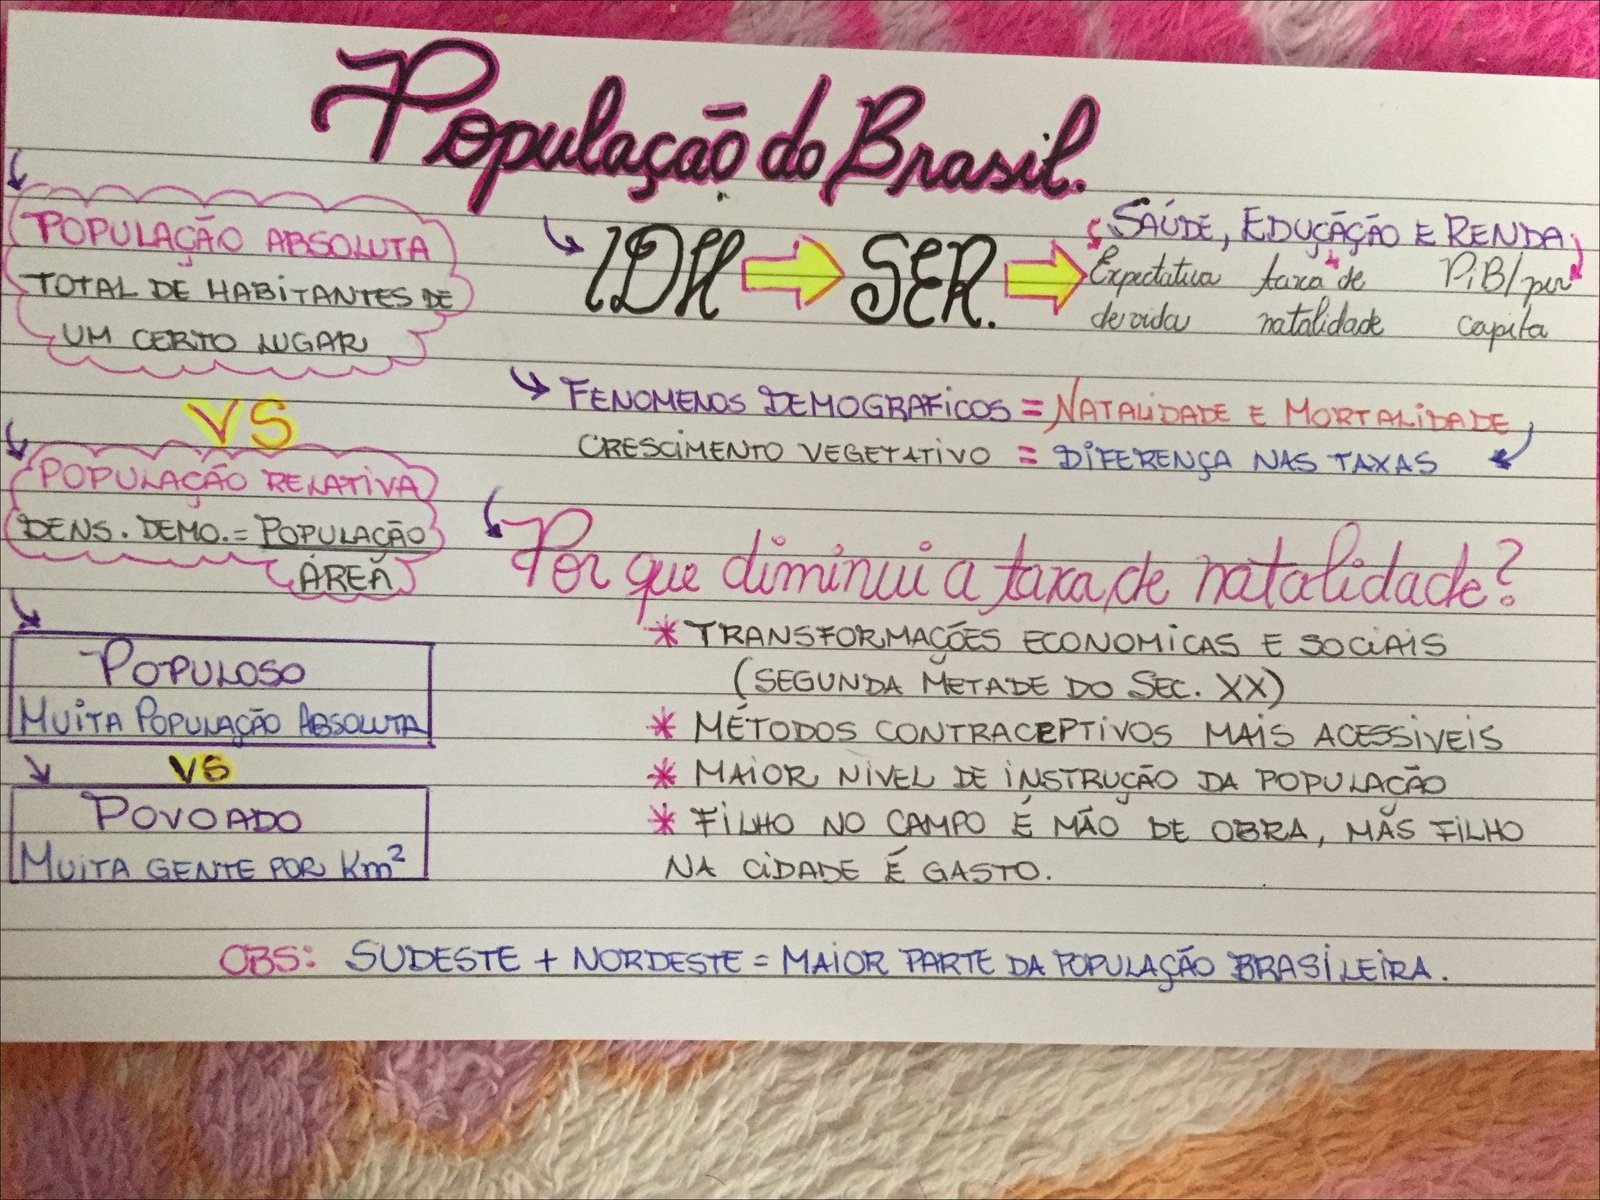 População do Brasil.
POPULAÇÃO ABSOLUTA
TOTAL DE HABITANTES DE
UM CERTO LUGAR
VS
POPULAÇÃO RELATIVA
DENS. DEMO. = POPULAÇÃO
ÁREA
POPULOSO
MUITA POPULAÇÃO ABSOLUTA
VS
POVOADO
MUITA GENTE POR Km²
IDH SER. SAÚDE, EDUÇAÇÃO E RENDA
Expectativa taxa de PiB/per
de vida natalidade capita
FENOMENOS DEMOGRAFICOS = NATALIDADE E MORTALIDADE
CRESCIMENTO VEGETATIVO = DIFERENÇA NAS TAXAS
Por que diminui a taxa de natalidade?
* TRANSFORMAÇÕES ECONOMICAS E SOCIAIS
(SEGUNDA METADE DO SEC. XX)
* MÉTODOS CONTRACEPTIVOS MAIS ACESSIVEIS
* MAIOR NIVEL DE INSTRUÇÃO DA POPULAÇÃO
* FILHO NO CAMPO É MÃO DE OBRA, MAS FILHO
NA CIDADE É GASTO.
OBS: SUDESTE + NORDESTE = MAIOR PARTE DA POPULAÇÃO BRASILEIRA.